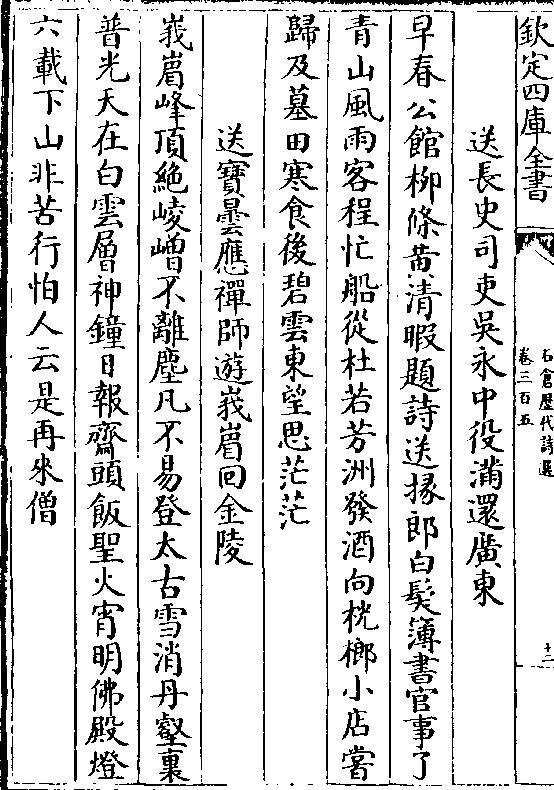 欽定四庫全書
石倉歴代詩選
卷三百五
十二
送長史司吏吳永中役滿還廣東
早春公館柳條黄清暇題詩送掾郎白髮簿書官事了
青山風雨客程忙船從杜若芳洲發酒向桄榔小店嘗
歸及墓田寒食後碧雲東望思茫茫
送寳曇應禪師遊峩嵋回金陵
峩嵋峰頂絶崚嶒不離塵凡不易登太古雪消丹壑裏
普光天在白雲層神鐘日報齋頭飯聖火宵明佛殿燈
六載下山非苦行怕人云是再來僧